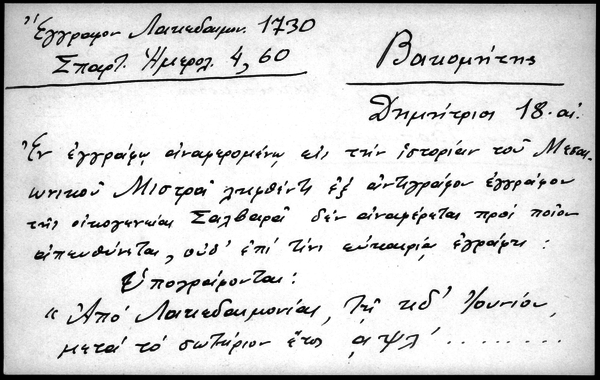 Ἔγγραφον Λακεδαιμον. 1730
Σπαρτ. Ἡμερολ. 4, 60
Βακομήτης
Δημήτριος 18. αἰ.
Ἐν ἐγγράφῳ ἀναφερομένῳ εἰς τὴν ἱστορίαν τοῦ Μεσαι-
ωνικοῦ Μιστρᾶ ληφθέντι ἐξ ἀντιγράφου ἐγγράφου
τῆς οἰκογενείας Σαλβαρᾶ δὲν ἀναφέρεται πρὸς ποῖον
ἀπευθύνεται, οὐδ' ἐπὶ τίνι εὐκαιρίᾳ ἐγράφη:
Ὑπογράφονται:
"Ἀπὸ Λακεδαιμονίας, τῇ κδ' Ἰουνίου,
μετὰ τὸ σωτήριον ἔτος αψλ' .........